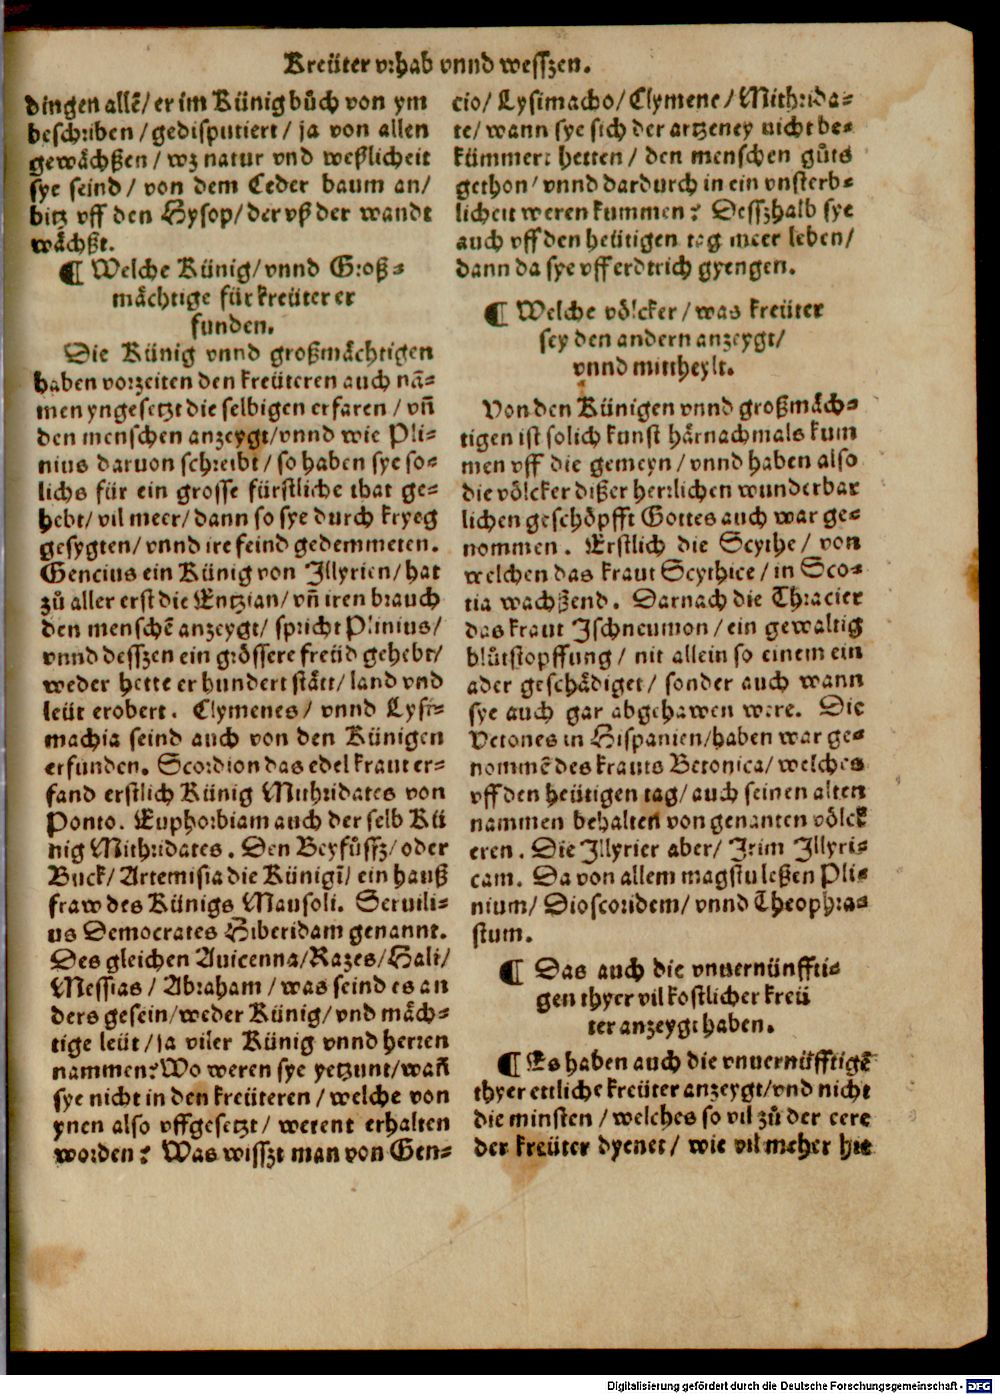 Kreüter vrhab vnnd wesſzen.
dingen allẽ/ er im Künig bůch von ym
beschriben / gedisputiert / ja von allen
gewächßen / wz natur vnd weßlicheit
sye seind / von dem Ceder baum an/
bitz vff den Hysop/ der vß der wandt
wächßt.
¶ Welche Künig/ vnnd Groß⸗
mächtige für kreüter er
funden.
Die Künig vnnd großmächtigen
haben vorzeiten den kreüteren auch nã⸗
men yngesetzt die selbigen erfaren / vñ
den menschen anzeygt/ vnnd wie Pli⸗
nius daruon schreibt / so haben sye so⸗
lichs für ein grosse fürstliche that ge⸗
hebt/ vil meer/ dann so sye durch kryeg
gesygten/ vnnd ire feind gedemmeten.
Gencius ein Künig von Jllyrien/ hat
zů aller erst die Entzian/ vñ iren brauch
den menschẽ anzeygt/ spricht Plinius/
vnnd desſzen ein grössere freüd gehebt/
weder hette er hundert stätt/ land vnd
leüt erobert. Clymenes/ vnnd Lysi⸗
machia seind auch von den Künigen
erfunden. Scordion das edel kraut er⸗
fand erstlich Künig Mithridates von
Ponto. Euphorbiam auch der selb Kü
nig Mithridates. Den Beyfůsſz/ oder
Buck/ Artemisia die Künigī/ ein hauß
fraw des Künigs Mausoli. Seruili⸗
us Democrates Hiberidam genannt.
Des gleichen Auicenna/ Razes/ Hali/
Messias / Abraham / was seind es an
ders gesein/ weder Künig/ vnd mäch⸗
tige leüt/ ja viler Künig vnnd herren
nammen? Wo weren sye yetzunt/ wañ
sye nicht in den kreüteren / welche von
ynen also vffgesetzt/ werent erhalten
worden? Was wisſzt man von Gen⸗
cio/ Lysimacho/ Clymene/ Mithrida⸗
te/ wann sye sich der artzeney nicht be⸗
kümmert hetten / den menschen gůts
gethon/ vnnd dardurch in ein vnsterb⸗
licheit weren kummen? Desſzhalb sye
auch vff den heütigen tag meer leben/
dann da sye vff erdtrich gyengen.
¶ Welche völcker / was kreüter
sey den andern anzeygt/
vnnd mittheylt.
Von den Künigen vnnd großmäch⸗
tigen ist solich kunst härnachmals kum
men vff die gemeyn / vnnd haben also
die völcker dißer herrlichen wunderbar
lichen geschöpfft Gottes auch war ge⸗
nommen. Erstlich die Scythe/ von
welchen das kraut Scythice / in Sco⸗
tia wachßend. Darnach die Thracier
das kraut Jschneumon / ein gewaltig
blůtstopffung / nit allein so einem ein
ader geschädiget / sonder auch wann
sye auch gar abgehawen were. Die
Vetones in Hispanien/ haben war ge⸗
nommẽ des krauts Betonica/ welches
vff den heütigen tag/ auch seinen alten
nammen behalten von genanten völck
eren. Die Jllyrier aber/ Jrim Jllyri⸗
cam. Da von allem magstu leßen Pli⸗
nium/ Dioscoridem/ vnnd Theophra⸗
stum.
¶ Das auch die vnuernünffti⸗
gen thyer vil kostlicher kreü
ter anzeygt haben.
¶ Es haben auch die vnuernüfftigẽ
thyer ettliche kreüter anzeygt/ vnd nicht
die minsten / welches so vil zů der eere
der kreüter dyenet / wie vil meher hie
Digitalisierung gefördert durch die Deutsche Forschungsgemeinschaft - DFG